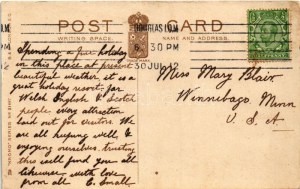 POST CARD
WRITING SPACE.
NAME AND ADDRESS.
DOUGLAS I.O.M.
6.30 PM
30 JUL 12
Spending a fine holiday
in this place at present
beautiful weather, it is a
great holiday resort for
Welsh English & Scotch
people every attraction
laid out for visitors. We
are all keeping well &
enjoying ourselves, trusting
this will find you all
likewise, with love
from all. E. Small
Miss Mary Blair
Winnebago, Minn
U. S. A